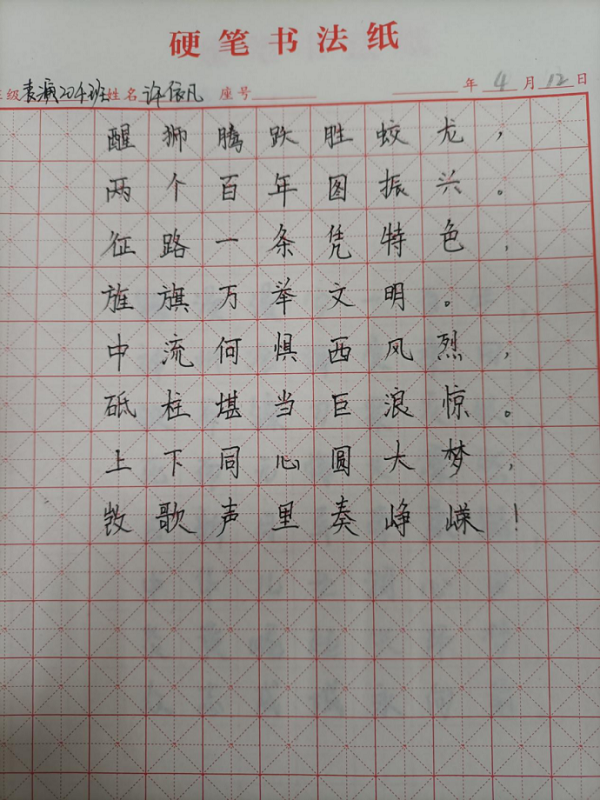 硬笔书法纸
级 表演204班 姓名 许依凡 座号 年 4 月 12 日
醒狮腾跃胜蛟龙,
两个百年图振兴。
征路一条凭特色,
旌旗万举文明。
中流何惧西风烈,
砥柱堪当巨浪惊。
上下同心圆大梦,
歌声里奏峥嵘!